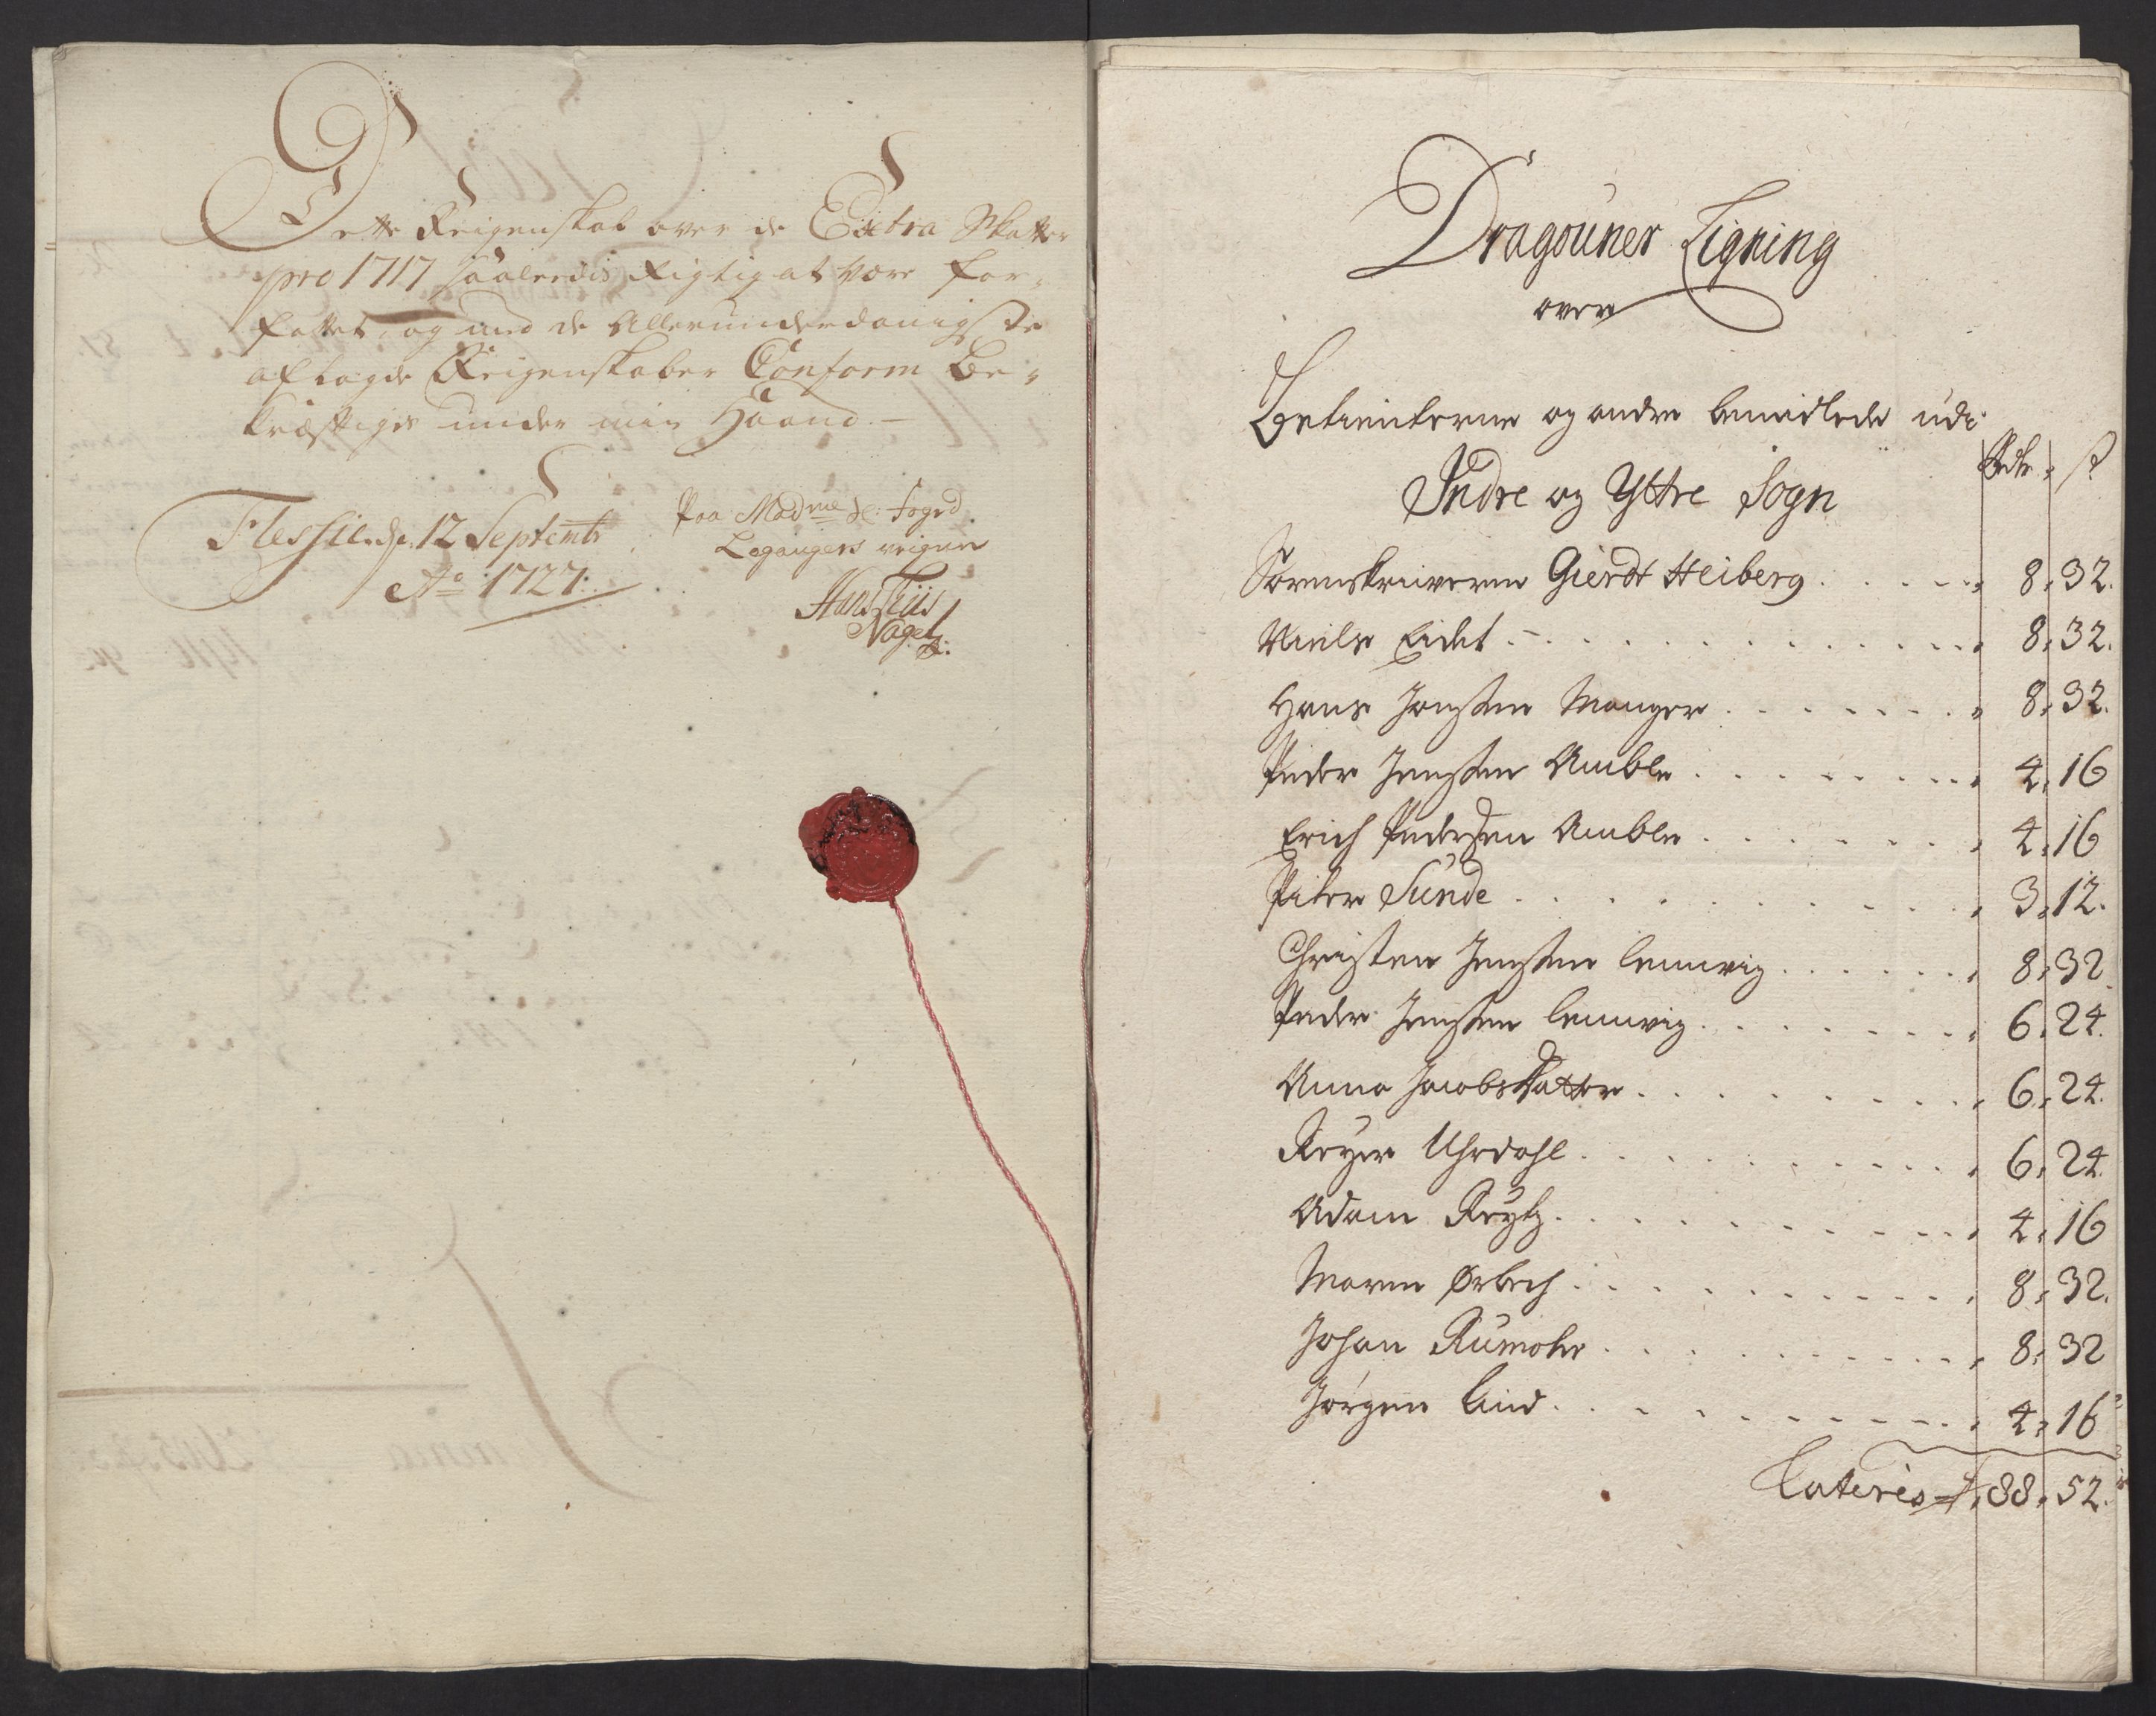 Dette Reigenskab over de Extra Skatter
pro 1717 saaleedis Rigtig at være for-
fattet, og med de Allerunderdanigste
aflagde Reigenskaber Conform Be-
kræftiges under min Haand.
Flessie d. 12 Septembr
Ao 1727.
Paa Madme Sl: Foged
Legangers veigne
Hans Tiis
Nagel.
Dragouner Ligning
over
Betienterne og andre bemidlede udi
Indre og Yttre Sogn
Rdr ß
Sorenskriveren Gierdt Heiberg 8 32.
Niels Eidet 8 32.
Hans Jensen Manger 8 32.
Peder Jensen Amble 4 16
Erich Pedersen Amble 4 16
Peter Sunde 3 12.
Christen Jensen Lemvig 8 32
Peder Jensen Lemvig 6 24.
Anna Jacobsdatter 6 24.
Reyer Uhrdahl 6 24.
Adam Reytz 4 16
Maren Ørbech 8 32.
Johan Rumohr 8 32
Jørgen Lind 4 16
Lateris 88 52.